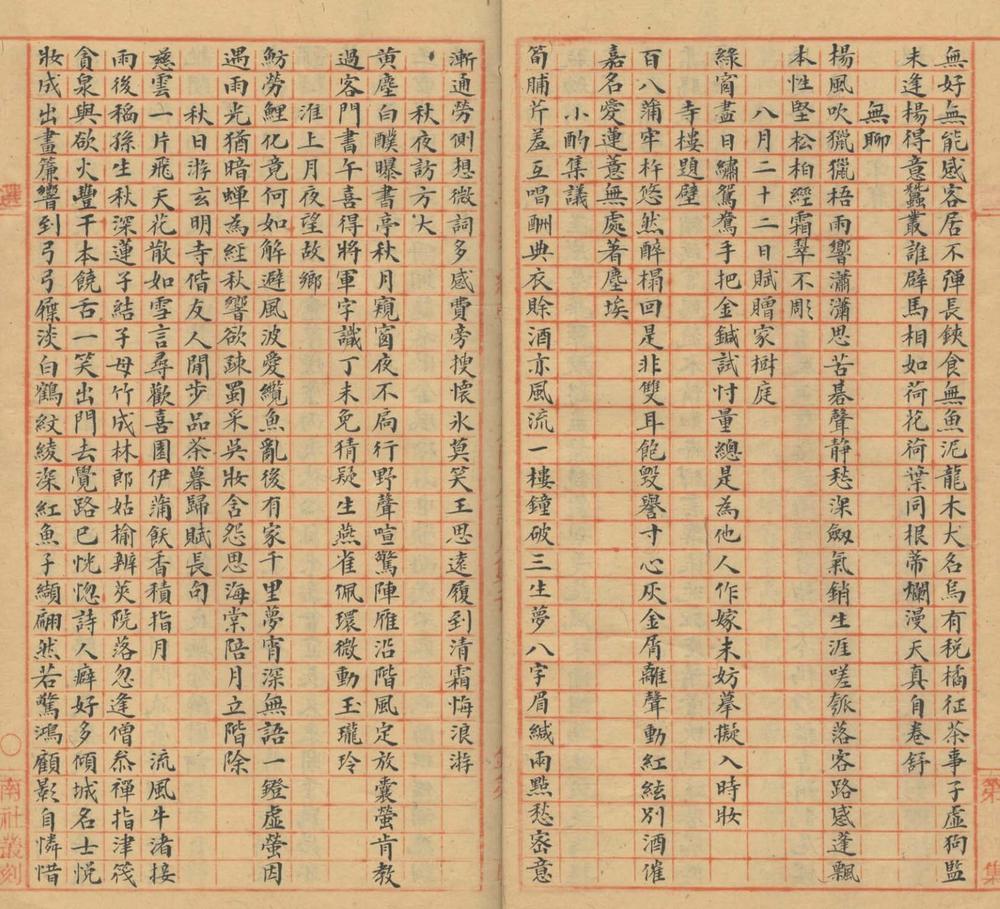 無好無能感客居不彈長鋏食無魚泥龍木犬名烏有税橘征茶事子虛狗監
未逢楊得意蠶叢誰闢馬相如荷花荷葉同根蒂爛漫天真自卷舒
無聊
楊風吹獵獵梧雨響瀟瀟思苦碁聲静愁深劔氣銷生涯嗟瓠落客路感蓬飄
本性堅松柏經霜翠不彫
八月二十二日賦贈家樹庭
綠窗盡日繡鴛鴦手把金鍼試忖量總是為他人作嫁未妨摹擬入時妝
寺樓題壁
百八蒲牢杵悠然醉榻回是非雙耳飽毀譽寸心灰金屑離聲動紅絃別酒催
嘉名愛蓮薏無處著塵埃
小酌集議
筍脯芹羞互唱酬典衣賒酒亦風流一樓鐘破三生夢八字眉緘兩點愁密意
漸通勞側想微詞多感費旁搜懷氷莫笑王思遠履到清霜悔浪游
秋夜訪方大
黄塵白醭曝書亭秋月窺窗夜不扃行野聲喧驚陣雁沿階風定放囊螢肯教
過客門書午喜得將軍字識丁未免猜疑生燕雀佩環微動玉瓏玲
淮上月夜望故鄉
魴勞鯉化竟何如解避風波愛纜魚亂後有家千里夢宵深無語一鐙虛螢因
遇雨光猶暗蟬為經秋響欲疎蜀采吳妝含怨思海棠陪月立階除
秋日游玄明寺偕友人閒步品茶暮歸賦長句
慈雲一片飛天花散如雪言尋歡喜園伊蒲飫香積指月　流風牛渚接
雨後稻孫生秋深蓮子結子母竹成林郎姑榆辨莢院落忽逢僧叅禪指津筏
貪泉與欲火豐干本饒舌一笑出門去覺路已恍惚詩人癖好多傾城名士悅
妝成出畫簾響到弓弓屧淡白鶴紋綾深紅魚子纈翩然若驚鴻顧影自憐惜
選
〇
南社叢刻
第
集